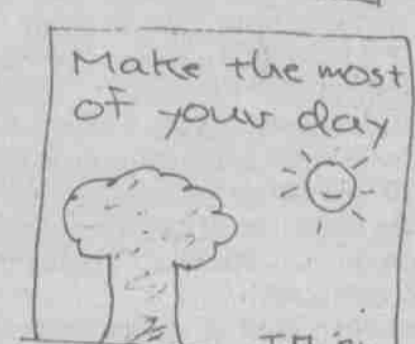 Make the most
of your day